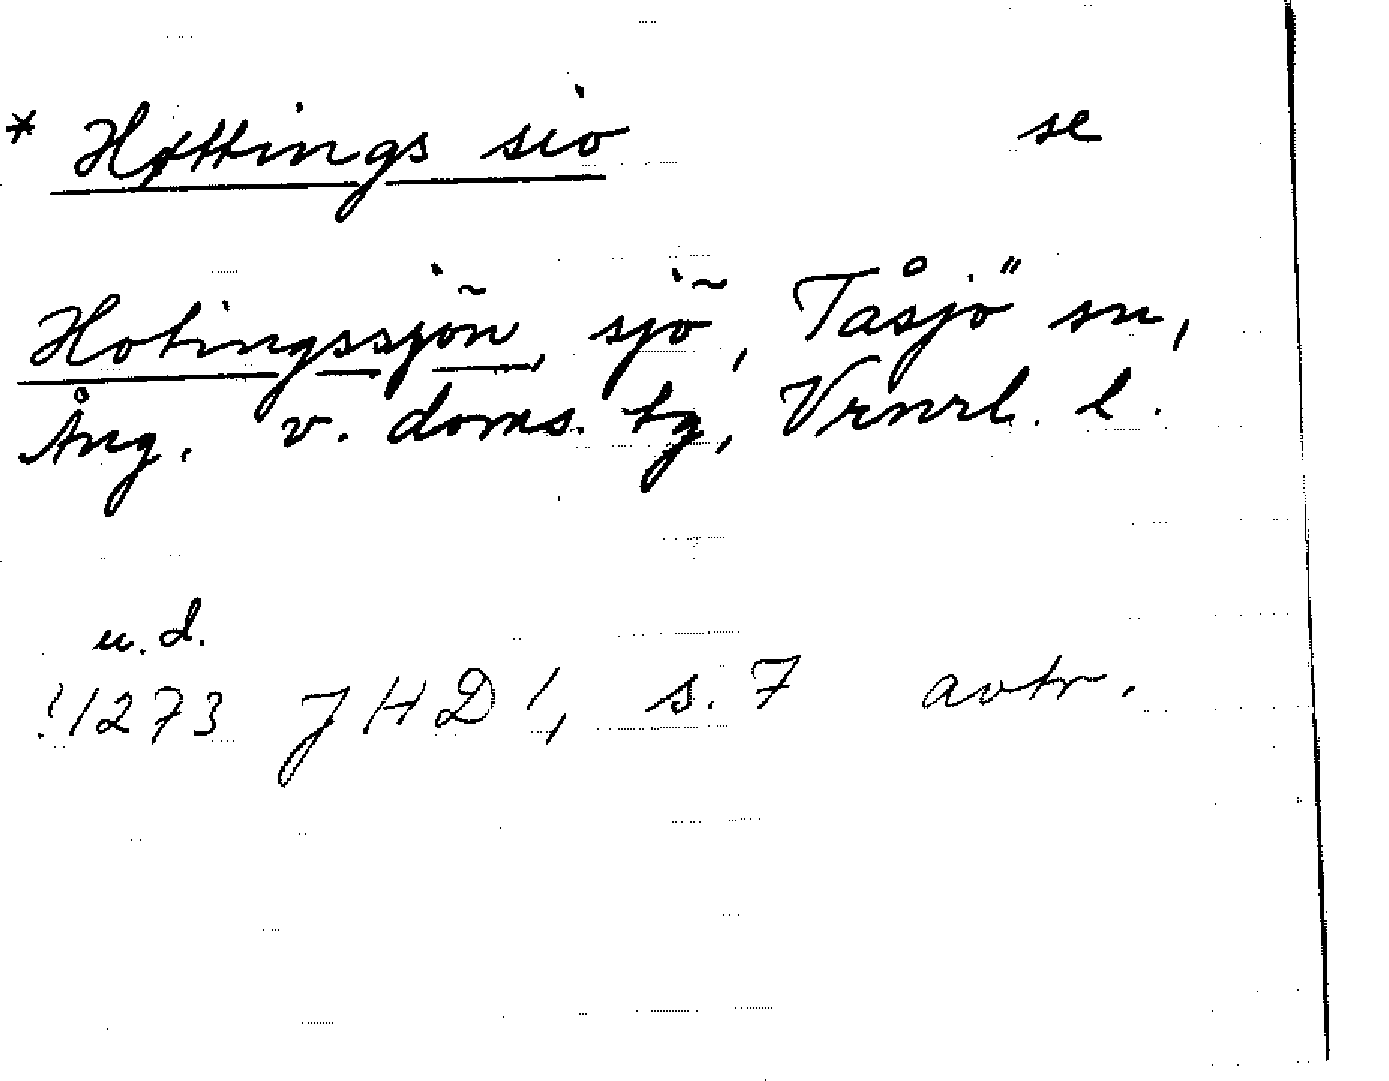 * Høttings sio se
Hotingssjön, sjö, Tåsjö sn,
Ång. v. doms. tg, Vrnrl. l.
u.d.
!1273 JHD 1, s. 7 avtr.